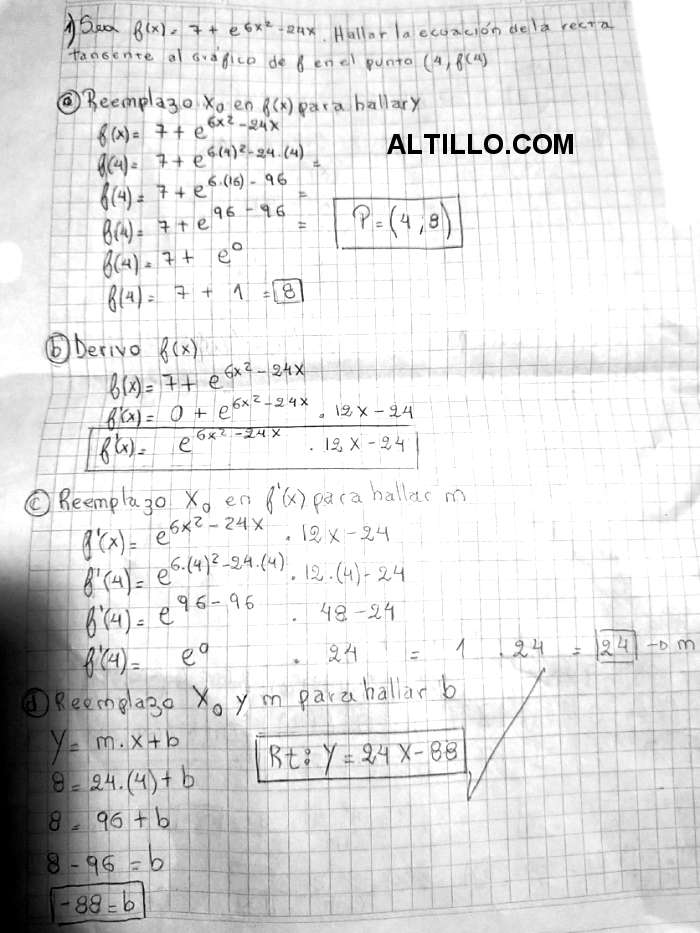 1) Sea f(x) = 7 + e^6x²-24x. Hallar la ecuación de la recta
tangente al gráfico de f en el punto (4, f(4)
a) Reemplazo X₀ en f(x) para hallar y
ALTILLO.COM
f(x) = 7 + e^6x²-24x
f(4) = 7 + e^6(4)²-24.(4) =
f(4) = 7 + e^6.(16)-96 =
f(4) = 7 + e^96-96 =
P = (4 ; 8)
f(4) = 7 + e^0
f(4) = 7 + 1 = 8
b) Derivo f(x)
f(x) = 7 + e^6x²-24x
f'(x) = 0 + e^6x²-24x . 12x-24
f'(x) = e^6x²-24x . 12x-24
c) Reemplazo X₀ en f'(x) para hallar m
f'(x) = e^6x²-24x . 12x-24
f'(4) = e^6.(4)²-24.(4) . 12.(4)-24
f'(4) = e^96-96 . 48-24
f'(4) = e^0 . 24 = 1 . 24 = 24 → m
d) Reemplazo X₀ y m para hallar b
Y = m.x+b
Rt: Y = 24X-88
8 = 24.(4)+b
8 = 96+b
8-96 = b
-88 = b